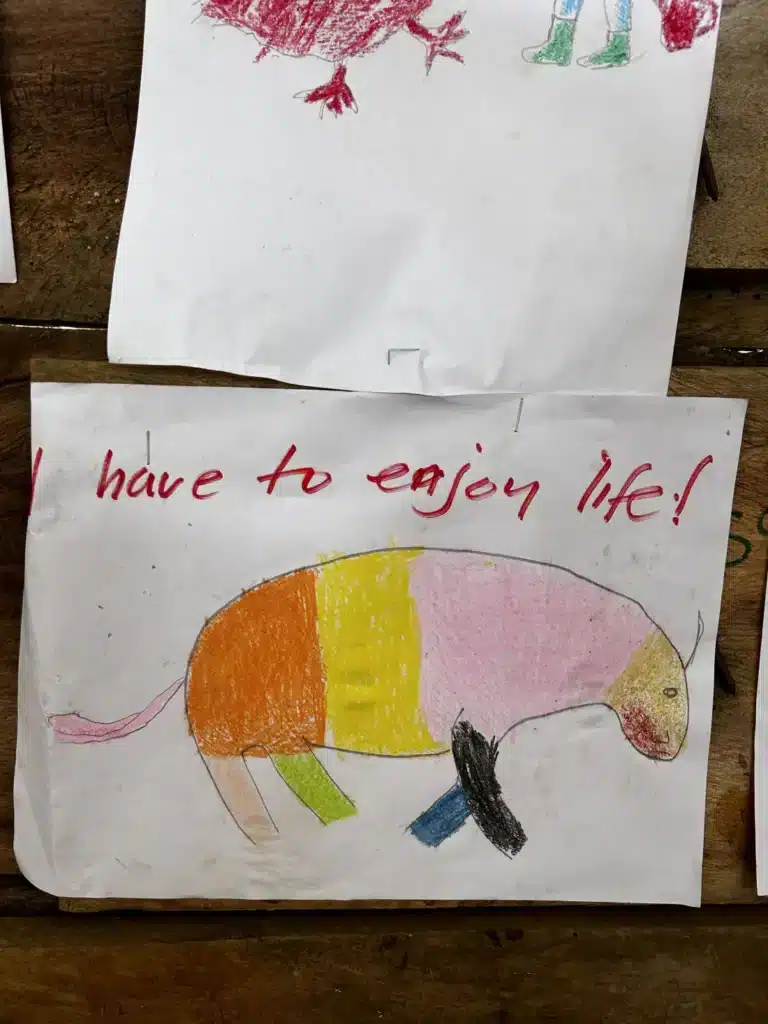 I have to enjoy life!